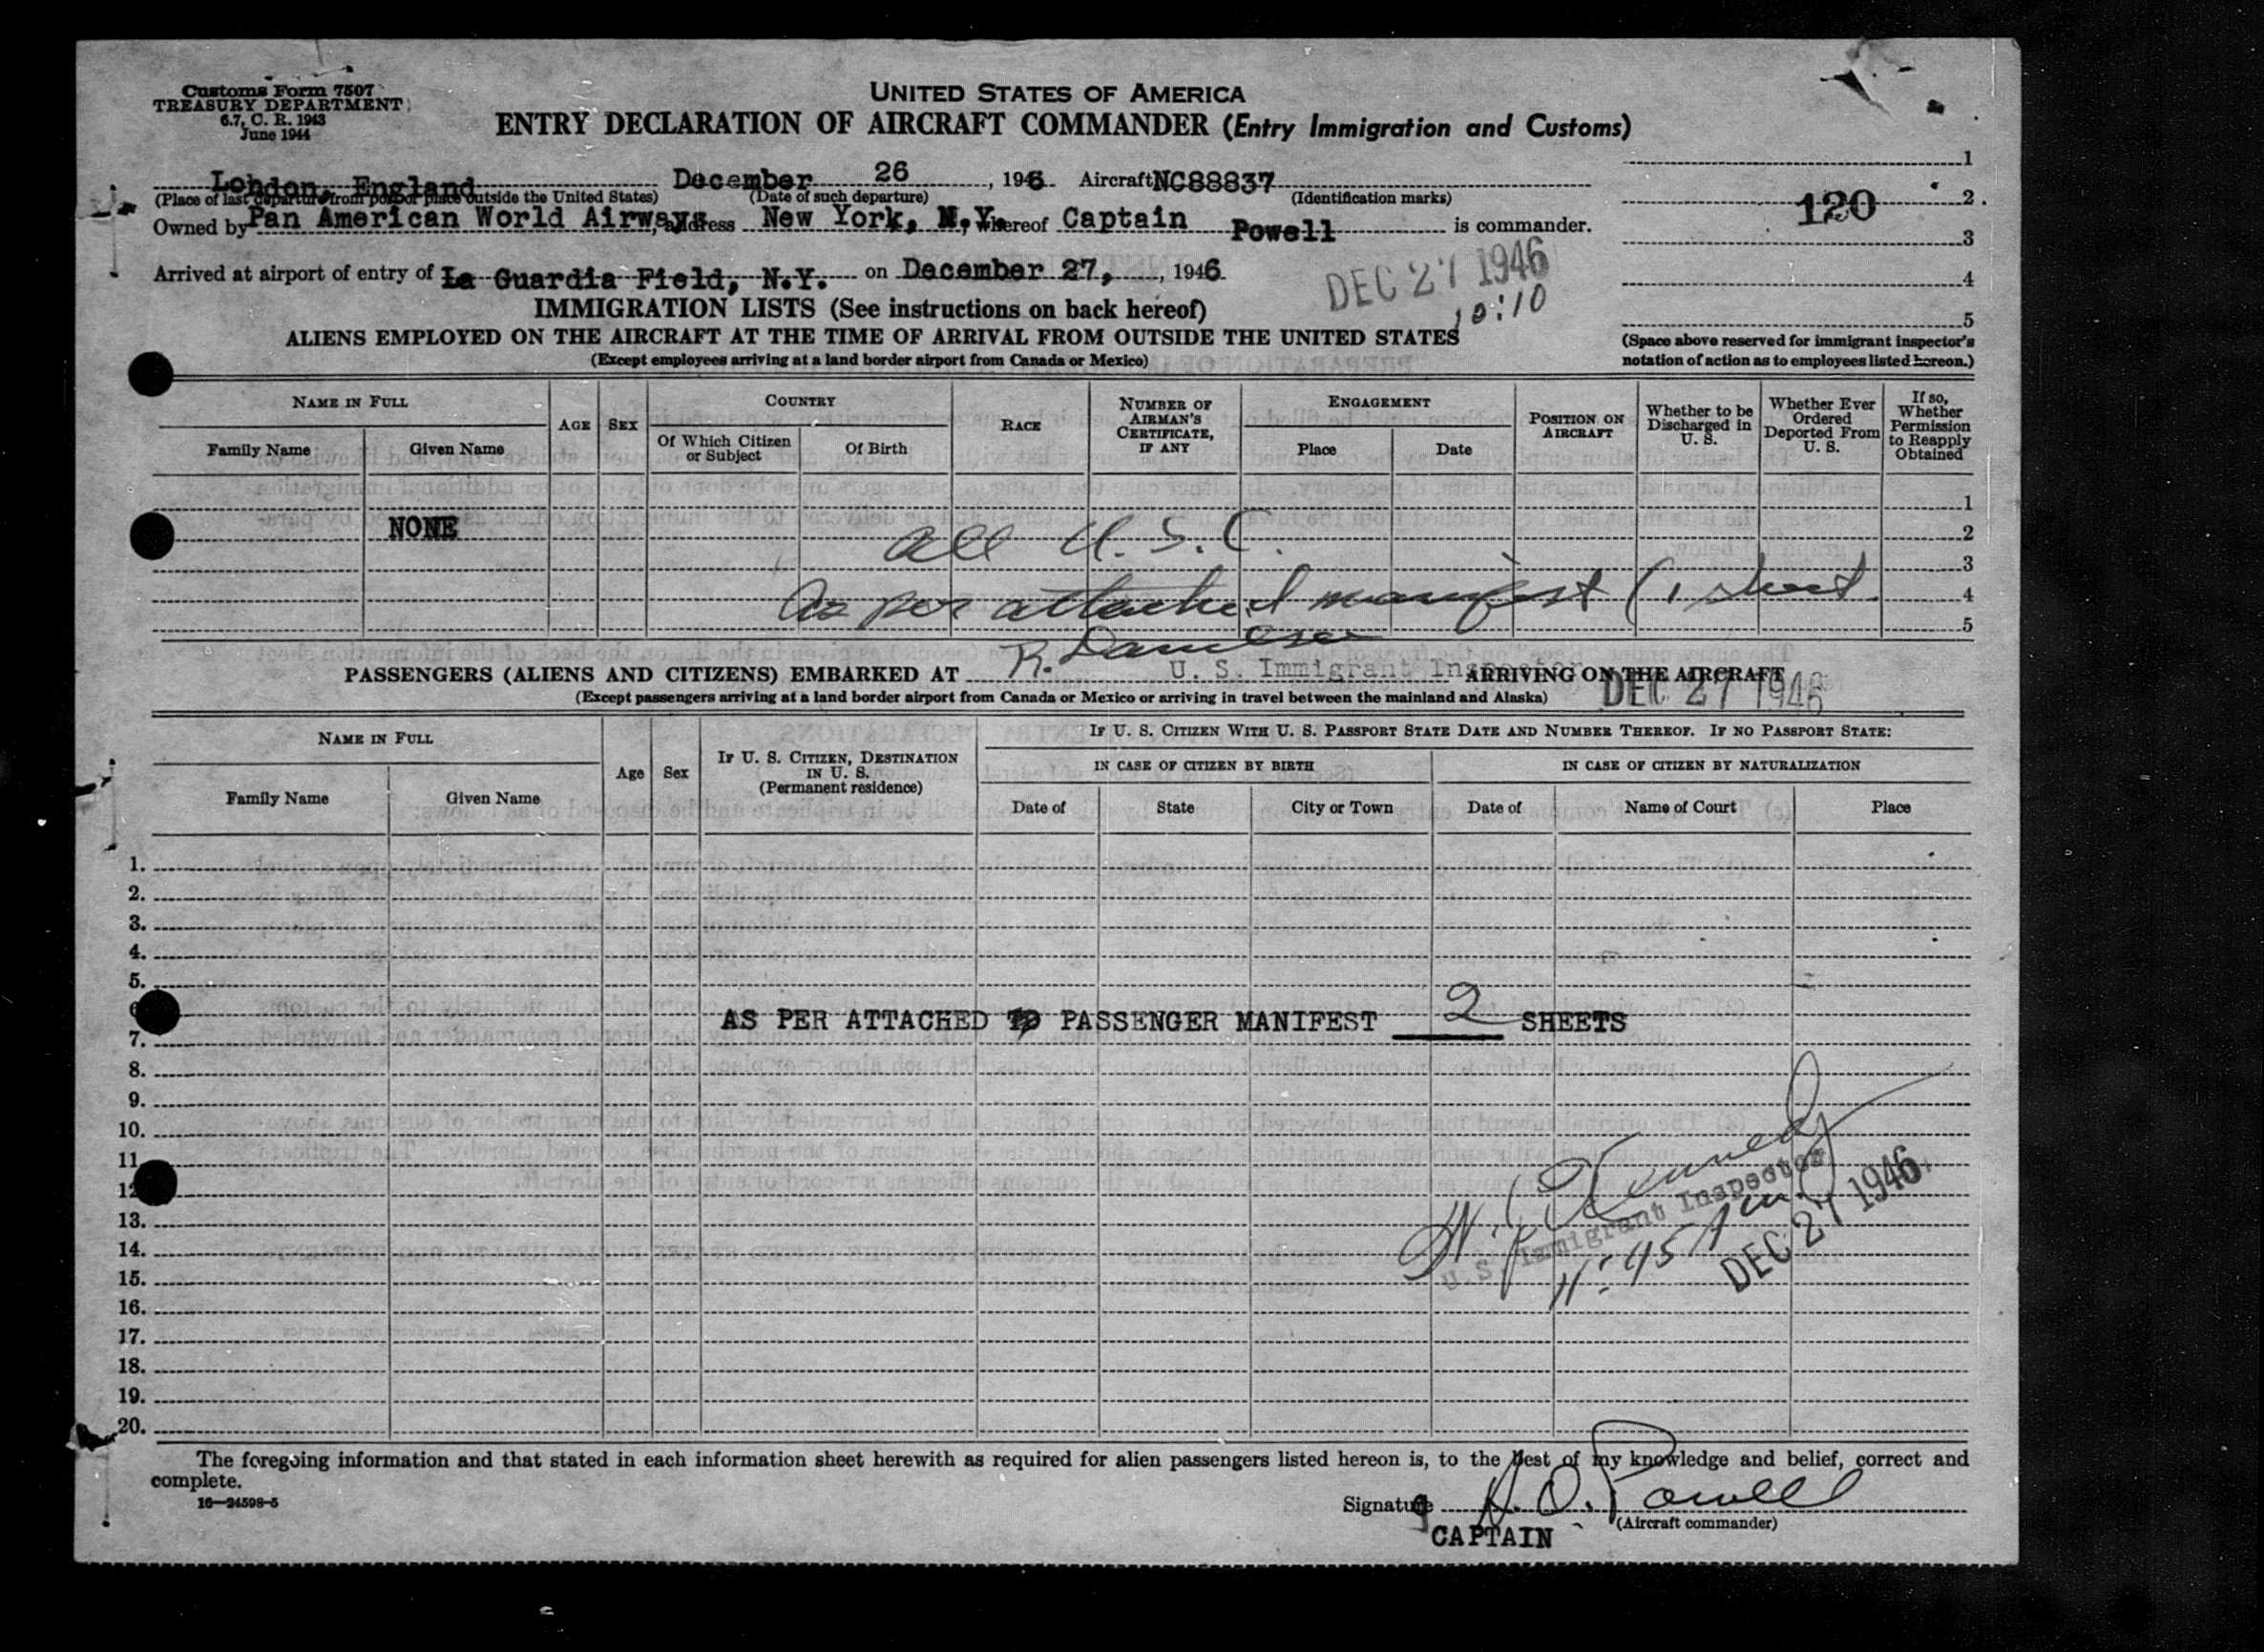 Customs Form 7507
TREASURY DEPARTMENT
6.7, C. R. 1943
June 1944
UNITED STATES OF AMERICA
ENTRY DECLARATION OF AIRCRAFT COMMANDER (Entry Immigration and Customs)
London, England December 26, 1946 Aircraft NC88837
(Place of last departure from port or place outside the United States) (Date of such departure) (Identification marks)
Owned by Pan American World Airways, address New York, N.Y. whereof Captain Powell is commander.
Arrived at airport of entry of La Guardia Field, N.Y. on December 27, 1946
DEC 27 1946
10:10
1
120 2
3
4
5
(Space above reserved for immigrant inspector's
notation of action as to employees listed hereon.)
IMMIGRATION LISTS (See instructions on back hereof)
ALIENS EMPLOYED ON THE AIRCRAFT AT THE TIME OF ARRIVAL FROM OUTSIDE THE UNITED STATES
(Except employees arriving at a land border airport from Canada or Mexico)
NAME IN FULL
Family Name Given Name
AGE SEX
COUNTRY
Of Which Citizen or Subject Of Birth
RACE
NUMBER OF AIRMAN'S CERTIFICATE, IF ANY
ENGAGEMENT
Place Date
POSITION ON AIRCRAFT
Whether to be Discharged in U. S.
Whether Ever Ordered Deported From U. S.
If so, Whether Permission to Reapply Obtained
1
NONE all U.S.C. 2
3
As per attached manifest (1 sheet 4
5
R.
U. S. Immigrant Inspector
PASSENGERS (ALIENS AND CITIZENS) EMBARKED AT ARRIVING ON THE AIRCRAFT
DEC 27 1946
(Except passengers arriving at a land border airport from Canada or Mexico or arriving in travel between the mainland and Alaska)
NAME IN FULL
Family Name Given Name
Age Sex
IF U. S. CITIZEN, DESTINATION IN U. S.
(Permanent residence)
IF U. S. CITIZEN WITH U. S. PASSPORT STATE DATE AND NUMBER THEREOF. IF NO PASSPORT STATE:
IN CASE OF CITIZEN BY BIRTH IN CASE OF CITIZEN BY NATURALIZATION
Date of State City or Town Date of Name of Court Place
1.
2.
3.
4.
5.
6
AS PER ATTACHED PASSENGER MANIFEST 2 SHEETS
7.
8.
9.
10.
11.
12
13.
14.
15.
16.
17.
18.
19.
20.
Kennedy
U. S. Immigrant Inspector
11:45 Am
DEC 27 1946
The foregoing information and that stated in each information sheet herewith as required for alien passengers listed hereon is, to the best of my knowledge and belief, correct and
complete.
16—24598-5
Signature H. O. Powell
(Aircraft commander)
CAPTAIN